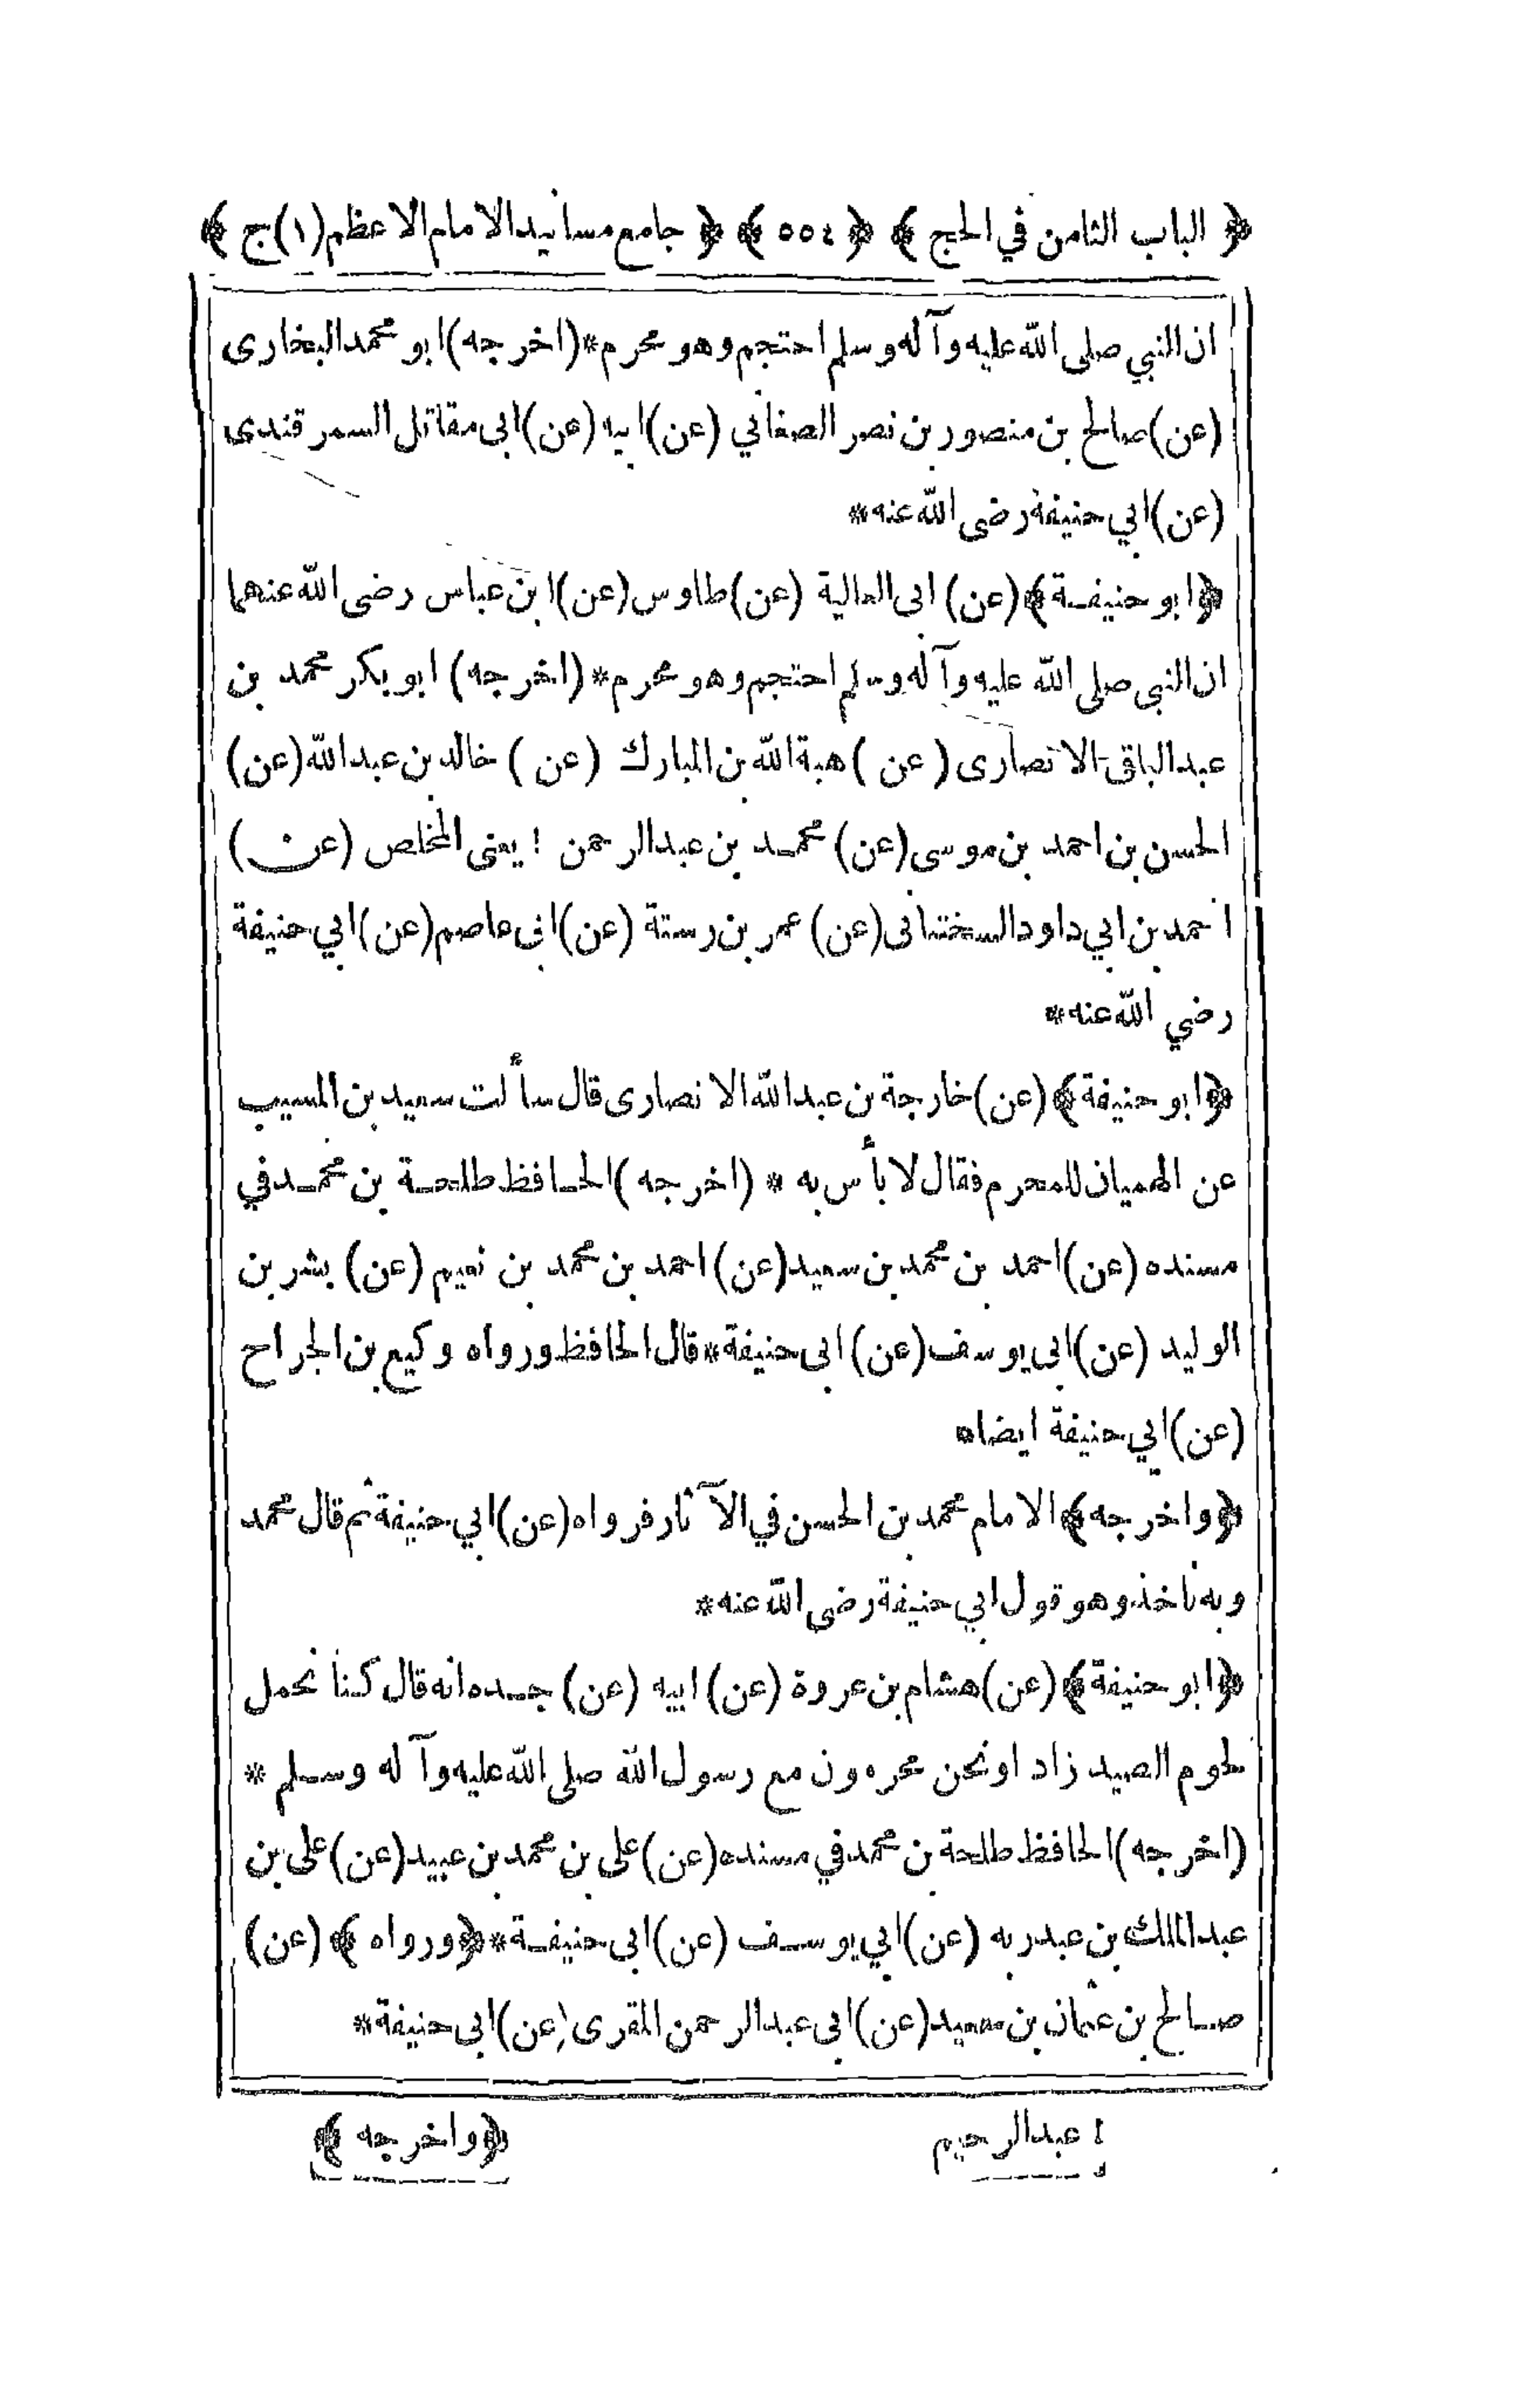 ﴿ الباب الثامن في الحج ﴾ ﴿ ٥٥٤ ﴾ ﴿ جامع مسانيد الامام الاعظم (١) ج ﴾
ان النبي صلى الله عليه وآله وسلم احتجم وهو محرم * (اخرجه) ابو محمد البخارى
(عن) صالح بن منصور بن نصر الصغاني (عن) ابيه (عن) ابى مقاتل السمرقندى
(عن) ابي حنيفة رضى الله عنه *
﴿ ابو حنيفة ﴾ (عن) ابى العالية (عن) طاوس (عن) ابن عباس رضى الله عنهما
ان النبى صلى الله عليه وآله وسلم احتجم وهو محرم * (اخرجه) ابو بكر محمد بن
عبد الباقى الانصارى (عن) هبة الله بن المبارك (عن) خالد بن عبد الله (عن)
الحسن بن احمد بن موسى (عن) محمد بن عبد الرحمن ! يعنى المخلص (عن)
احمد بن ابي داود السختانى (عن) عمر بن رستة (عن) ابى عاصم (عن) ابي حنيفة
رضي الله عنه *
﴿ ابو حنيفة ﴾ (عن) خارجة بن عبد الله الانصارى قال سألت سعيد بن المسيب
عن الهميان للمحرم فقال لا بأس به * (اخرجه) الحافظ طلحة بن محمد في
مسنده (عن) احمد بن محمد بن سعيد (عن) احمد بن محمد بن نعيم (عن) بشر بن
الوليد (عن) ابى يوسف (عن) ابى حنيفة * قال الحافظ ورواه وكيع بن الجراح
(عن) ابي حنيفة ايضاه
﴿ واخرجه ﴾ الامام محمد بن الحسن في الآثار فرواه (عن) ابي حنيفة ثم قال محمد
وبه ناخذ وهو قول ابي حنيفة رضى الله عنه *
﴿ ابو حنيفة ﴾ (عن) هشام بن عروة (عن) ابيه (عن) جده انه قال كنا نحمل
لحوم الصيد زاد او نحن محرمون مع رسول الله صلى الله عليه وآله وسلم *
(اخرجه) الحافظ طلحة بن محمد في مسنده (عن) على بن محمد بن عبيد (عن) على بن
عبد الملك بن عبد ربه (عن) ابي يوسف (عن) ابى حنيفة * ﴿ ورواه ﴾ (عن)
صالح بن عثمان بن سعيد (عن) ابى عبد الرحمن المقرى (عن) ابى حنيفة *
! عبد الرحيم
﴿ واخرجه ﴾